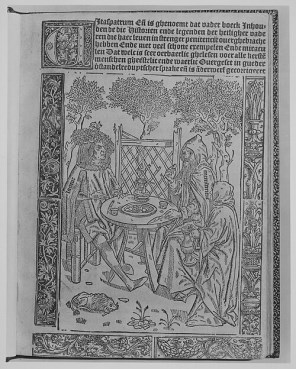 Vitaspatrum Est is ghenoemt dat vader boeck Inhou
den de die Historien ende legenden der heiligher vade
ren die haer leuen in strenger penitencie ouerghebracht
hebben Ende met veel schone exempelen Ende miracu
len Dat welc is seer oerbaerlic ghelesen voor alle kersten
menschen gheestelic ende waerlic Ouergeset in gueder
duytscher sprake